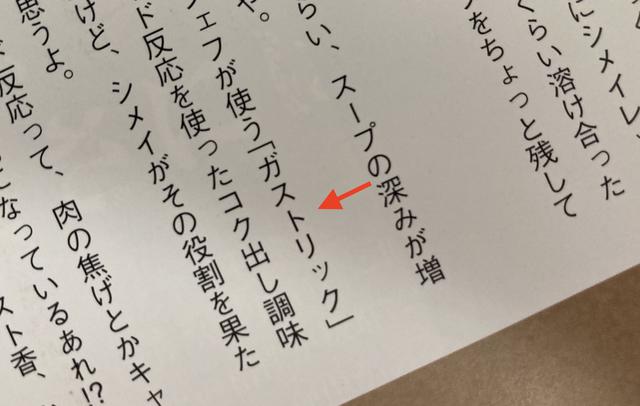 にシメイ
くらい溶け合った
をちょっと残して
らい、スープの深みが増
や。
ェフが使う「ガストリック」
ド反応を使ったコク出し調味
けど、シメイがその役割を果た
思うよ。
反応って、肉の焦げとかキャ
なっているあれ!?
スト香、